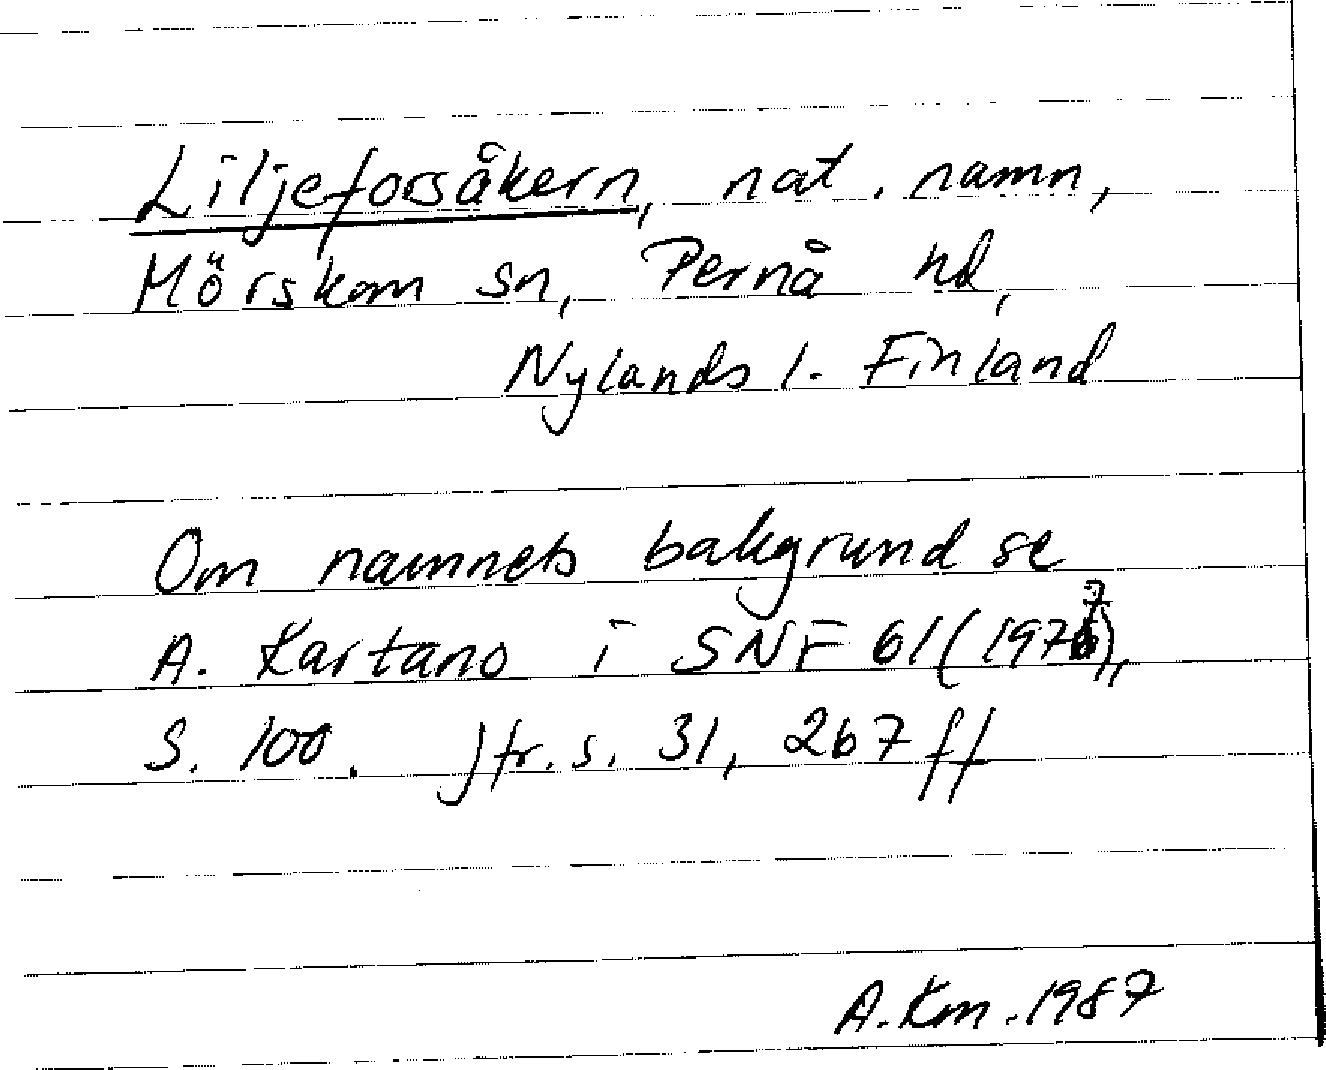 Liljeforsåkern, nat. namn,
Mörskom sn, Pernå hd,
Nylands l. Finland
Om namnets bakgrund se
A. Kartano i SNF 61 (1977),
S. 100. Jfr. s. 31, 267 ff
A. Km. 1987